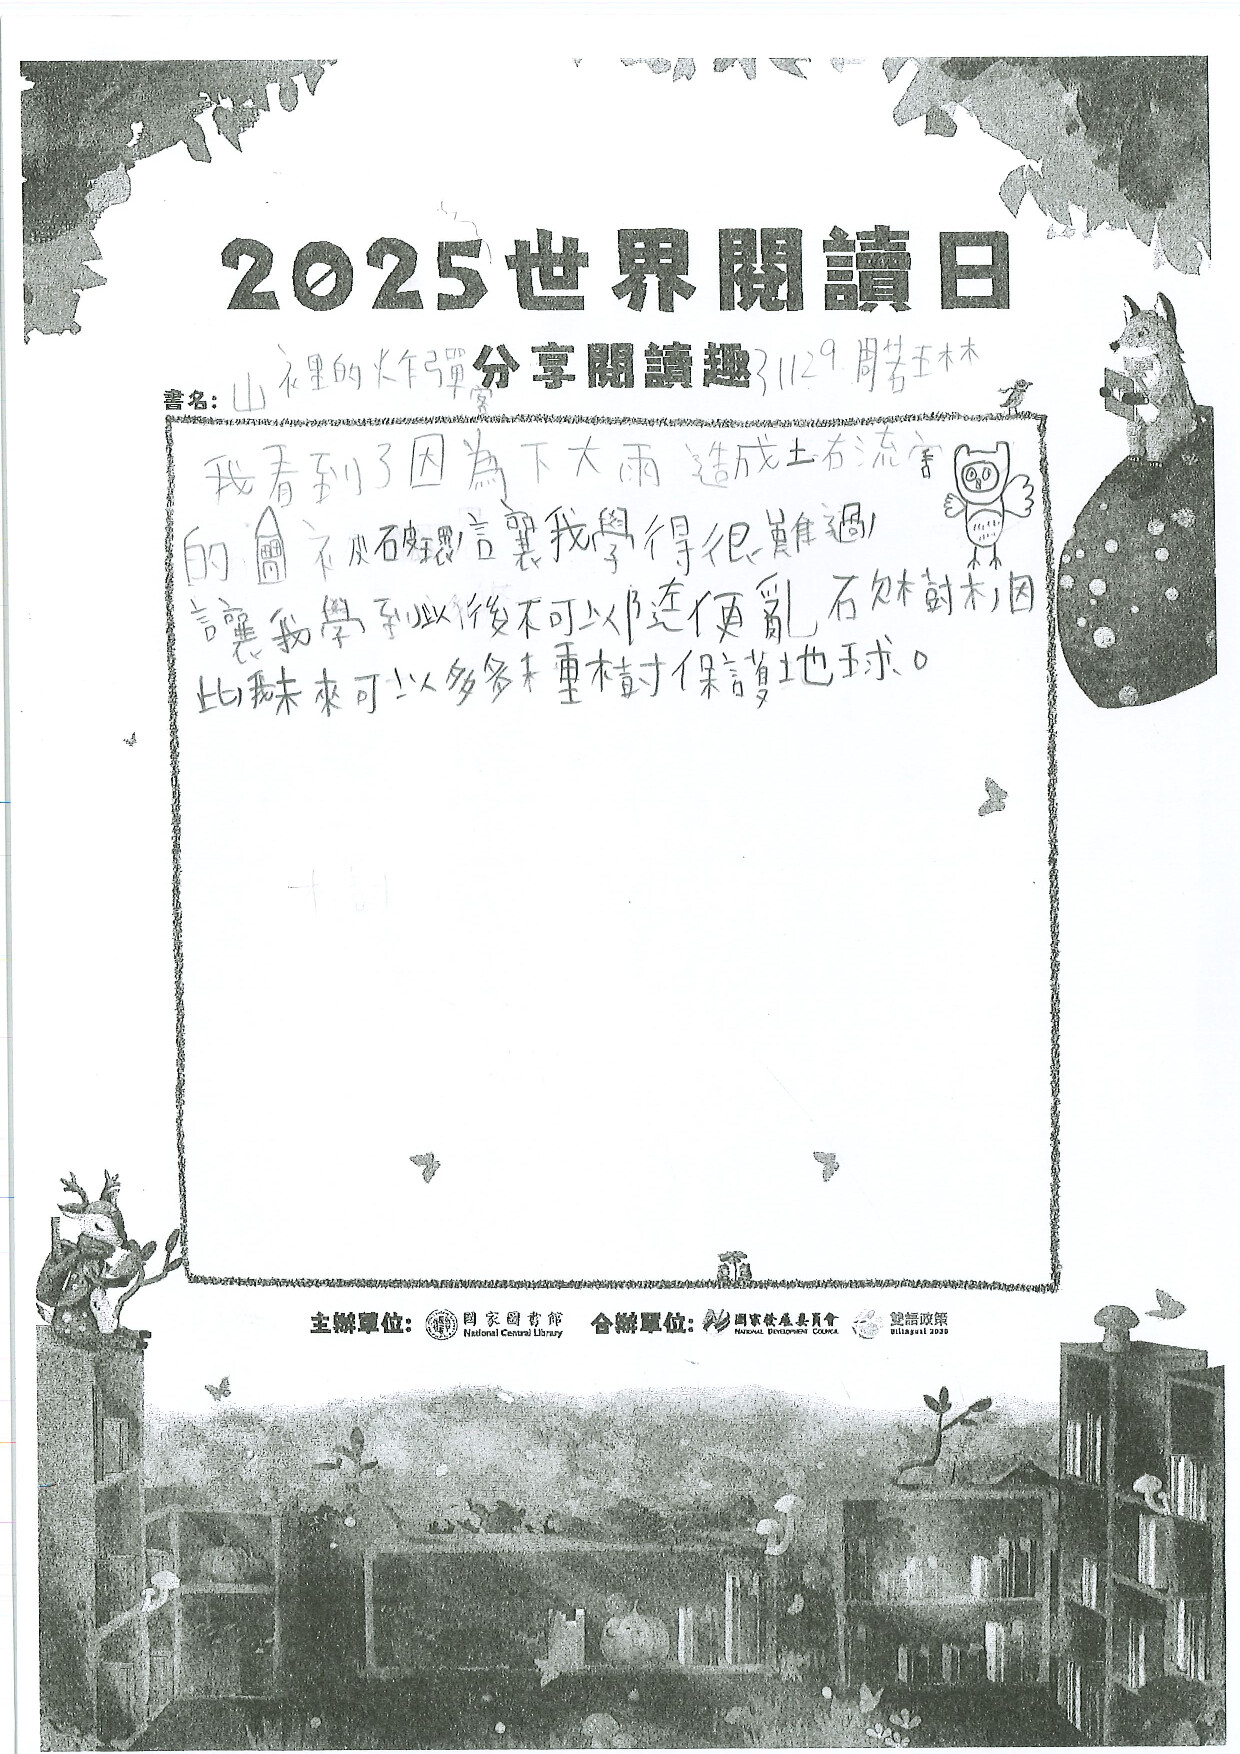 2025世界閱讀日
分享閱讀趣
書名: 山裡的炸彈客 31129 周若玉林
我看到了因為下大雨造成土石流害
的 被破壞,讓我學得很難過,
讓我學到此後不可以隨便亂砍樹木,因
此我未來可以多多種樹保護地球。
主辦單位: 國家圖書館 National Central Library 合辦單位: 國家發展委員會 NATIONAL DEVELOPMENT COUNCIL 雙語政策 Bilingual 2030